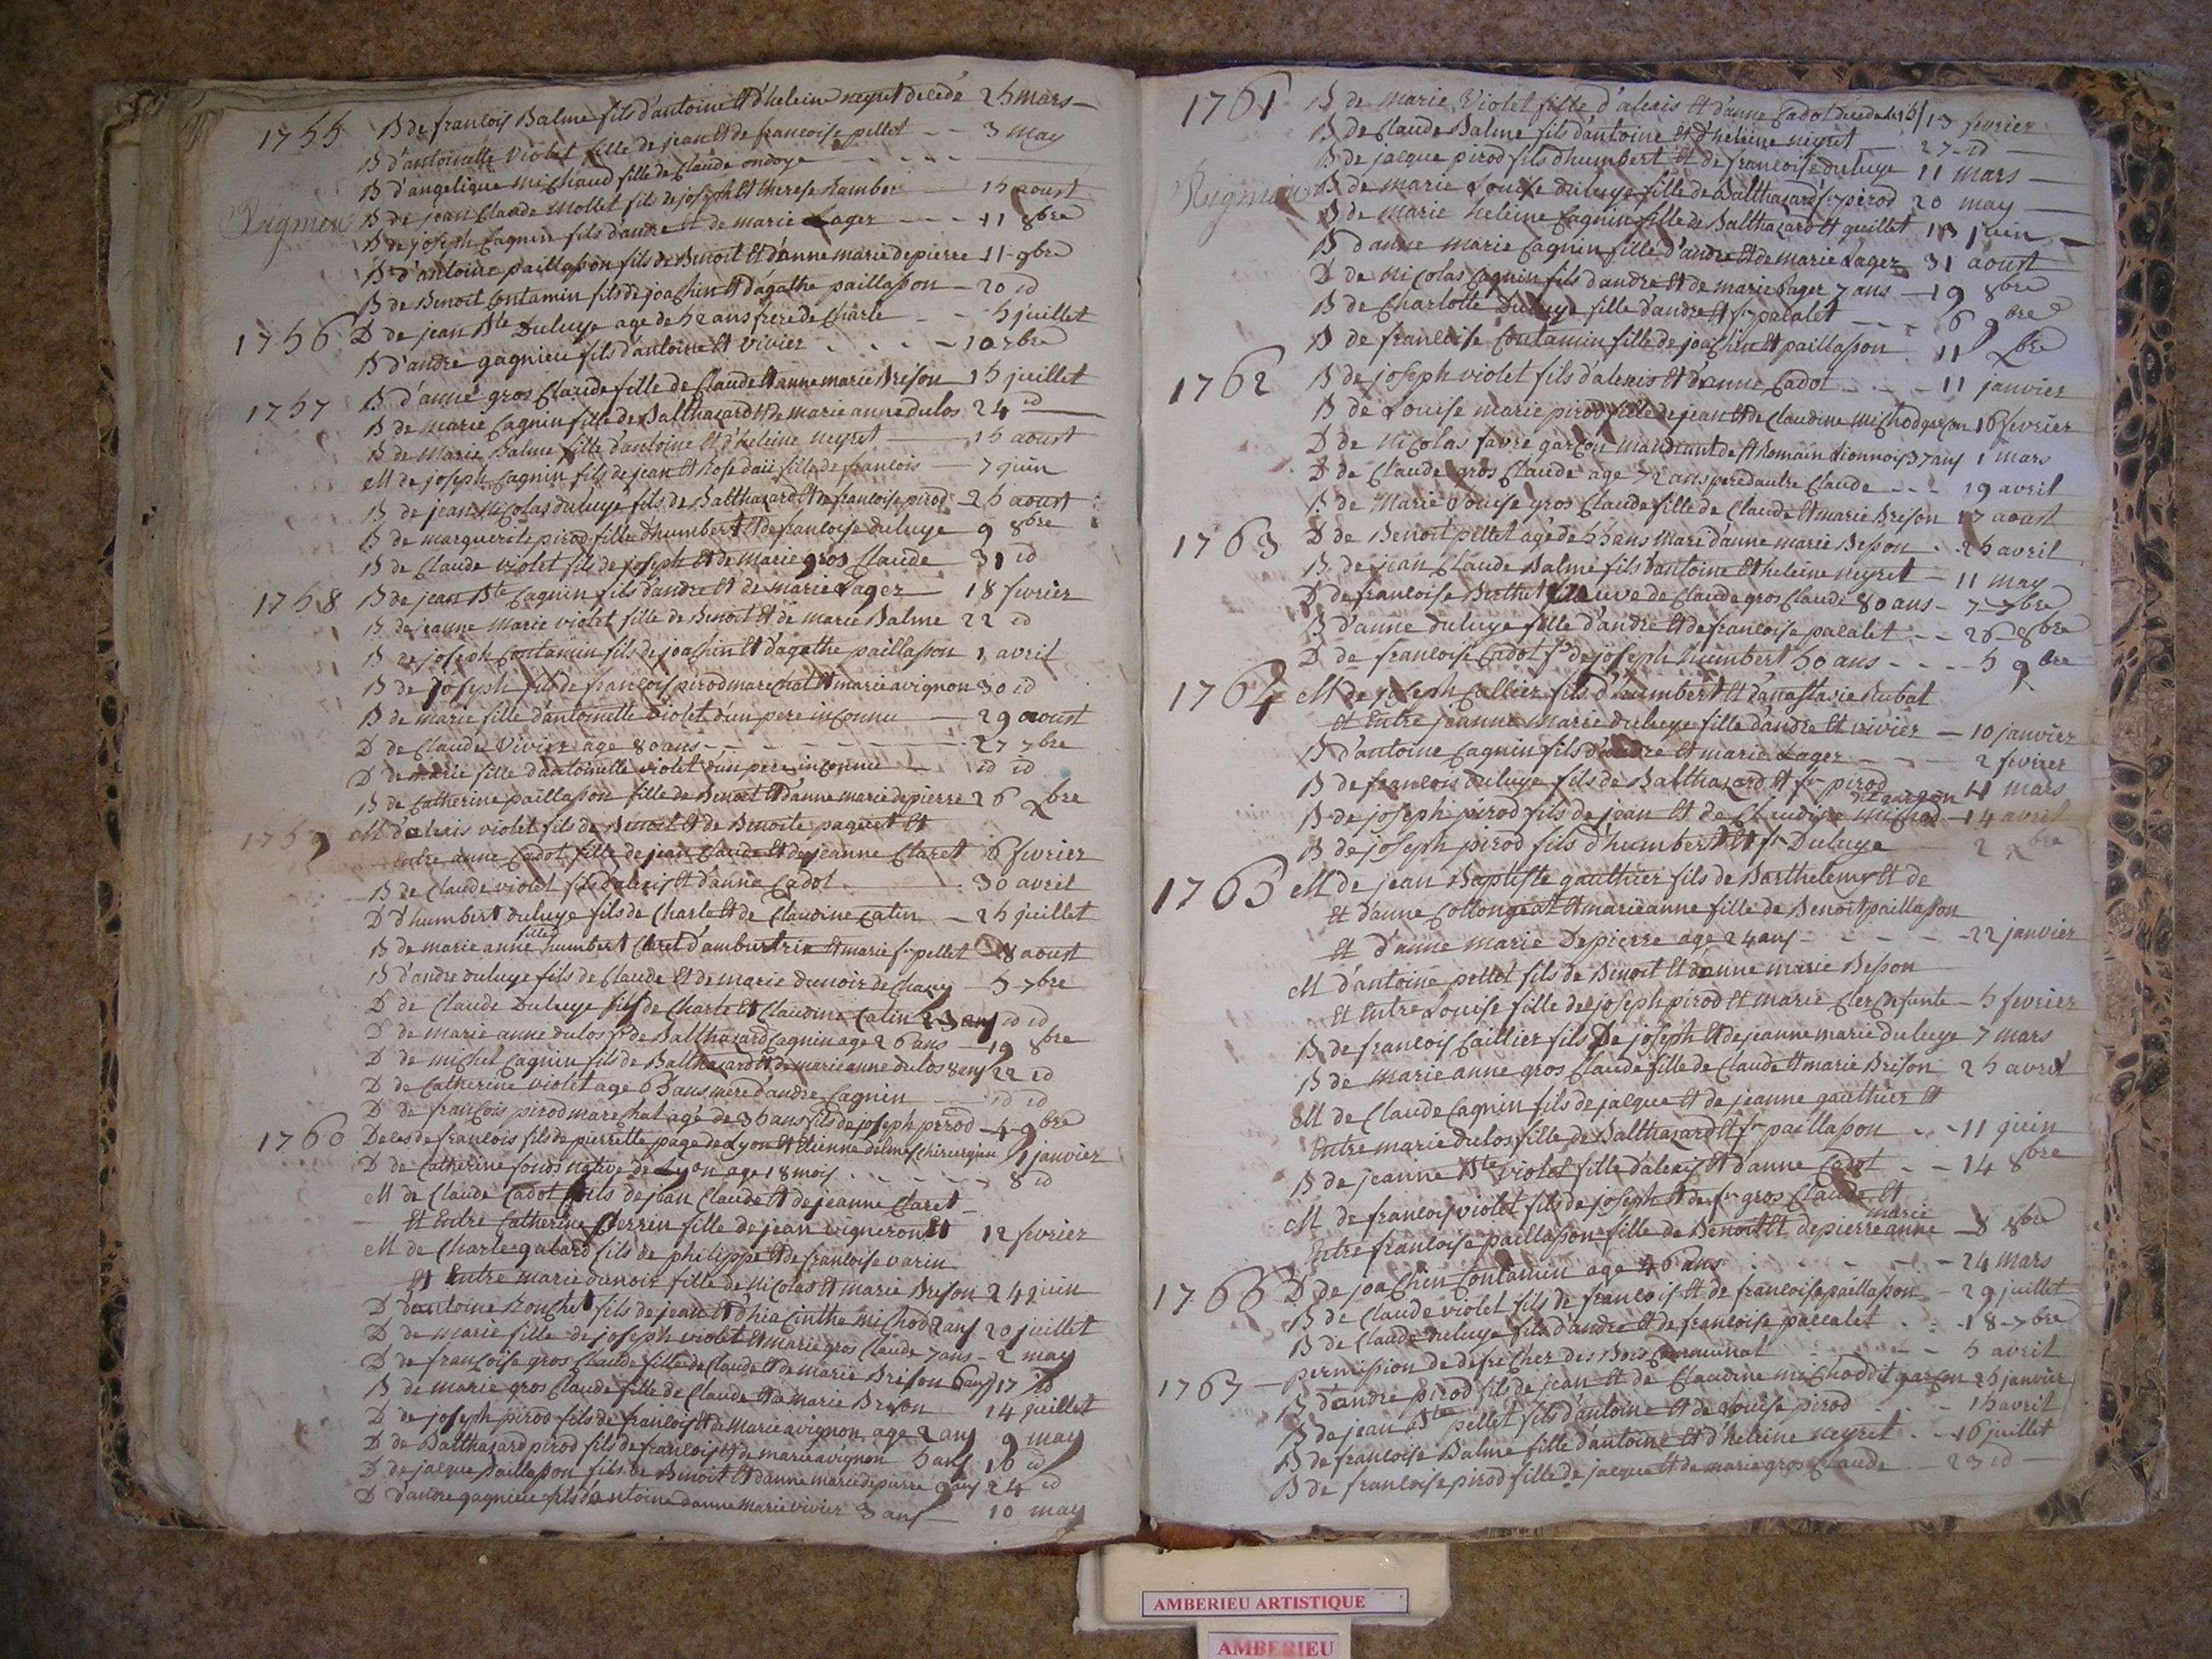 1755 B de francois Balme fils d'antoine et d'heleine neyret decede 25 mars
B d'antoinette Violet fille de jean et de francoise pellet 3 may
B d'angelique michaud fille de Claude ondoye
Rigmeu B de jean Claude Mollet fils de joseph et therese 15 aoust
B de joseph Cagnin fils d'andre et de marie Lager 11 8bre
B d'antoine paillasson fils de Benoit et d'anne marie depierre 11 9bre
B de Benoit Contamin fils de joachin et d'agathe paillasson 20 id
1756 D de jean Bte Duluye age de 52 ans frere de Charle 5 juillet
B d'andre gagnieu fils d'antoine et vivier 10 7bre
1757 B d'anne gros Claude fille de Claude et anne marie Brison 15 juillet
B de marie Cagnin fille de Balthazard et de marie anne dulos 24 id
B de Marie Balme fille d'antoine et d'heleine neyret 15 aoust
M de joseph Cagnin fils de jean et Rose daii fille de francois 7 juin
B de jean Nicolas duluye fils de Balthazard et de francoise pirod 25 aoust
B de marguerite pirod fille d'humbert et de francoise duluye 9 8bre
B de Claude violet fils de joseph et de Marie gros Claude 31 id
1758 B de jean Bte Cagnin fils d'andre et de marie Lager 18 fevrier
B de jeanne Marie violet fille de Benoit et de marie Balme 22 id
B de joseph Contamin fils de joachin et d'agathe paillasson 1 avril
B de joseph fils de francois pirod marechal et marie avignon 30 id
B de marie fille d'antoinette violet d'un pere inconnu 29 aoust
D de Claude Vivier age 80 ans 27 7bre
D de marie fille d'antoinette violet d'un pere inconnu id id
B de Catherine paillasson fille de Benoit et d'anne marie depierre 26 Xbre
1759 M d'alexis violet fils de Benoit et de Benoite paquet et
entre anne Cadot fille de jean Claude et de jeanne Claret 6 fevrier
B de Claude violet fils d'alexis et d'anne Cadot 30 avril
D d'humbert duluye fils de Charle et de Claudine Catin 25 juillet
B de marie anne fille humbert Claret d'ambutrix et marie fse pellet 8 aoust
B d'andre duluye fils de Claude et de marie dunoir de Chavy 5 7bre
D de Claude Duluye fils de Charle et Claudine Catin 23 ans id id
D de marie anne dulos fe de Balthazard Cagnin age 26 ans 19 8bre
D de michel Cagnin fils de Balthazard et de marie anne dulos 8 ans 22 id
D de Catherine violet age 65 ans mere d'andre Cagnin id id
D de francois pirod marechal age de 35 ans fils de joseph pirod 4 9bre
1760 Deces de francois fils de pierrette page de Lyon et Etienne delmes Chirurgien 1 janvier
D de Catherine fonds native de Lyon age 18 mois 8 id
M de Claude Cadot fils de jean Claude et de jeanne Claret
et Entre Catherine Perrin fille de jean vigneron et 12 fevrier
M de Charle galard fils de philippe et de francoise varin
et Entre marie dunoir fille de Nicolas et marie Brison 24 juin
D d'antoine Ronchet fils de jean et d'hiacinthe michod 2 ans 20 juillet
D de marie fille de joseph violet et marie gros Claude 7 ans 2 may
D de francoise gros Claude fille de Claude et de marie Brison 6 ans 17 id
B de marie gros Claude fille de Claude et de Marie Brison 14 juillet
D de joseph pirod fils de francois et de Marie avignon age 2 ans 9 may
D de Balthazard pirod fils de francois et de marie avignon 5 ans 16 id
D de jacque paillasson fils de Benoit et d'anne marie depierre 9 ans 24 id
D d'andre gagnieu fils d'antoine d'anne marie vivier 3 ans 10 may
1761 B de marie Violet fille d'alexis et d'anne Cadot decede le 15 / 13 fevrier
B de Claude Balme fils d'antoine et d'heleine neyret 27 id
B de jacque pirod fils d'humbert et de francoise duluye 11 mars
Rigmeu B de marie Louise duluye fille de Balthazard fse pirod 20 may
B de marie heleine Cagnin fille de Balthazard et quillet 13 juin
B d'anne marie Cagnin fille d'andre et de marie Lager 31 aoust
D de Nicolas Cagnin fils d'andre et de marie Lager 7 ans 19 8bre
B de Charlotte Duluye fille d'andre et fse palalet 6 9bre
B de francoise Contamin fille de joachin et paillasson 11 Xbre
1762 B de joseph violet fils d'alexis et d'anne Cadot 11 janvier
B de Louise marie pirod fille de jean et de Claudine Michod garcon 16 fevrier
D de Nicolas favre garcon mandiant de St Romain Lionnois 37 ans 1 mars
D de Claude gros Claude age 72 ans pere d'autre Claude 19 avril
B de Marie Louise gros Claude fille de Claude et marie Brison 17 aoust
1763 D de Benoit pellet age de 55 ans mari d'anne marie Besson 25 avril
B de jean Claude Balme fils d'antoine et heleine neyret 11 may
D de francoise Berthet veuve de Claude gros Claude 80 ans 7 7bre
B d'anne duluye fille d'andre et de francoise palalet 26 8bre
D de francoise Cadot fe de joseph humbert 50 ans 5 9bre
1764 M de joseph Callier fils d'humbert et d'anastasie Rubat
et Entre jeanne Marie duluye fille d'andre et vivier 10 janvier
B d'antoine Cagnin fils d'andre et marie Lager 2 fevrier
B de francois duluye fils de Balthazard et fse pirod 11 mars
B de joseph pirod fils de jean et de Claudine Michod dit garcon 14 avril
B de joseph pirod fils d'humbert et fse Duluye 2 Xbre
1765 M de jean Baptiste gauthier fils de Barthelemy et de
et d'anne Collongeat et marie anne fille de Benoit paillasson
et d'anne marie Depierre age 24 ans 22 janvier
M d'antoine pellet fils de Benoit et d'anne marie Besson
et Entre Louise fille de joseph pirod et marie Clerc defunte 5 fevrier
B de francois Caillier fils De joseph et de jeanne marie duluye 7 mars
B de Marie anne gros Claude fille de Claude et marie Brison 25 avril
M de Claude Cagnin fils de jacque et de jeanne gauthier et
Entre marie dulos fille de Balthazard et fse paillasson 11 juin
B de jeanne Bte violet fille d'alexis et d'anne Cadot 14 8bre
M de francois violet fils de joseph et de fse gros Claude et
Entre francoise paillasson fille de Benoit et depierre marie anne 8 8bre
1766 D de joachin Contamin age 46 ans 24 mars
B de Claude violet fils de francois et de francoise paillasson 29 juillet
B de Claude duluye fils d'andre et de francoise pacalet 18 7bre
permission de defrecher des Bois Communal 5 avril
1767 B d'andre pirod fils de jean et de Claudine michod dit garcon 25 janvier
B de jean Bte pellet fils d'antoine et de Louise pirod 15 avril
B de francoise Balme fille d'antoine et d'heleine neyret 16 juillet
B de francoise pirod fille de jacque et de marie gros Claude 23 id
AMBERIEU ARTISTIQUE
AMBERIEU